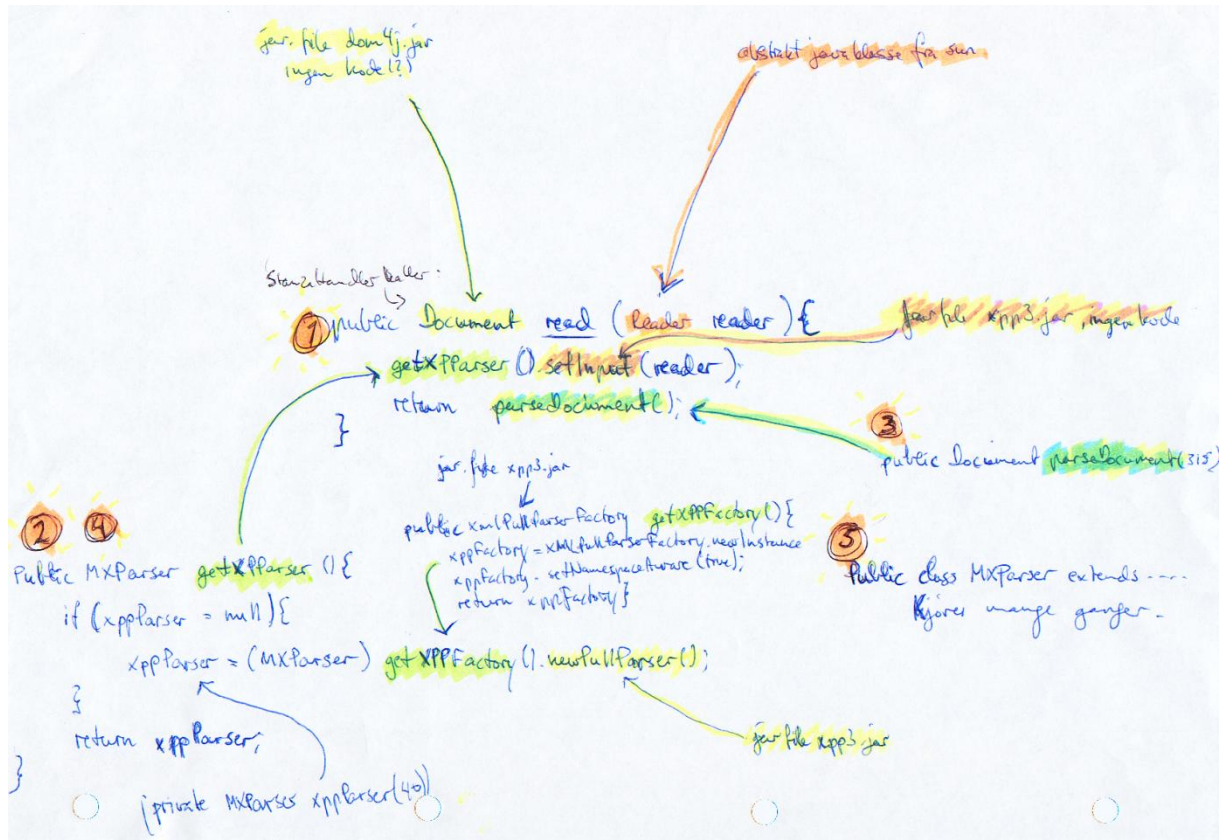 jar. file dom4j.jar
ingen kode(!?)
abstrakt javaklasse fra sun
StanzaHandler kaller.
1 public Document read (Reader reader) {
jar file xpp3.jar, ingen kode
getXPParser().setInput(reader);
return parseDocument();
}
3
public Document parseDocument(315)
jar. file xpp3.jar
public XmlPullParserFactory getXPPFactory(){
xppFactory = XMLPullParserFactory.newInstance
xppFactory. setNamespaceAware (true);
return xppFactory}
2 4
Public MXParser getXPParser () {
if (xppParser = null){
xppParser = (MXParser) getXPPFactory().newPullParser();
}
return xppParser;
}
(private MXParser xppParser(40))
jar file xpp3.jar
5
Public class MXParser extends ----
Kjøres mange ganger.